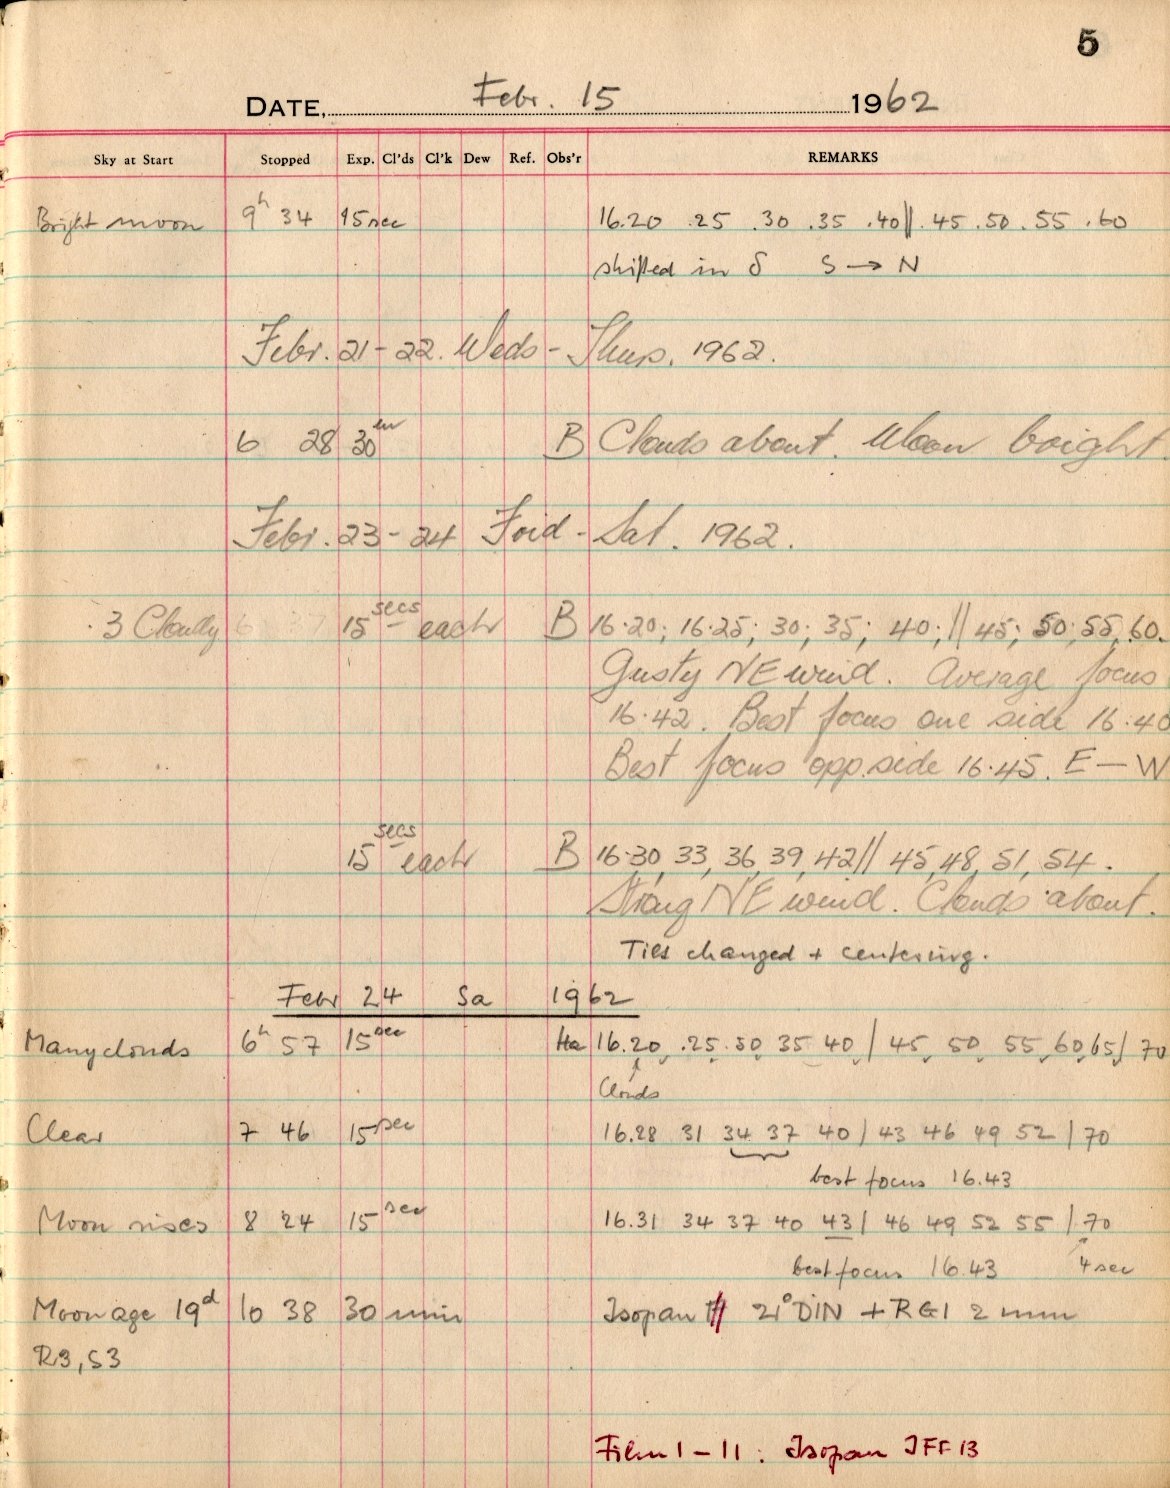 5
DATE, Febr. 15 1962
Sky at Start Stopped Exp. Cl'ds Cl'k Dew Ref. Obs'r REMARKS
Bright moon 9h 34 15sec 16.20 .25 .30 .35 .40// .45 .50 .55 .60
shifted in δ S → N
Febr. 21-22. Weds - Thurs. 1962.
6 28 30m B Clouds about. Moon bright.
Febr. 23-24 Frid - Sat. 1962.
3 Cloudy 15 secs each B 16.20; 16.25; 30; 35; 40; // 45; 50; 55, 60.
Gusty NE wind. Average focus
16.42. Best focus one side 16.40
Best focus opp. side 16.45. E — W
15 secs each B 16.30, 33, 36, 39, 42// 45, 48, 51, 54.
Strong NE wind. Clouds about.
changed + centering.
Febr 24 Sa 1962
Many clouds 6h 57 15sec Ha 16.20, .25 30 35 40 / 45, 50, 55, 60, 65/ 70
Clouds
Clear 7 46 15sec 16.28 31 34 37 40 / 43 46 49 52 / 70
best focus 16.43
Moon rises 8 24 15sec 16.31 34 37 40 43 / 46 49 52 55 / 70
best focus 16.43 4 sec
Moon age 19d 10 38 30 min Isopan 21° DIN + RG1 2 mm
R3, S3
Film 1 - 11 : Isopan IFF 13